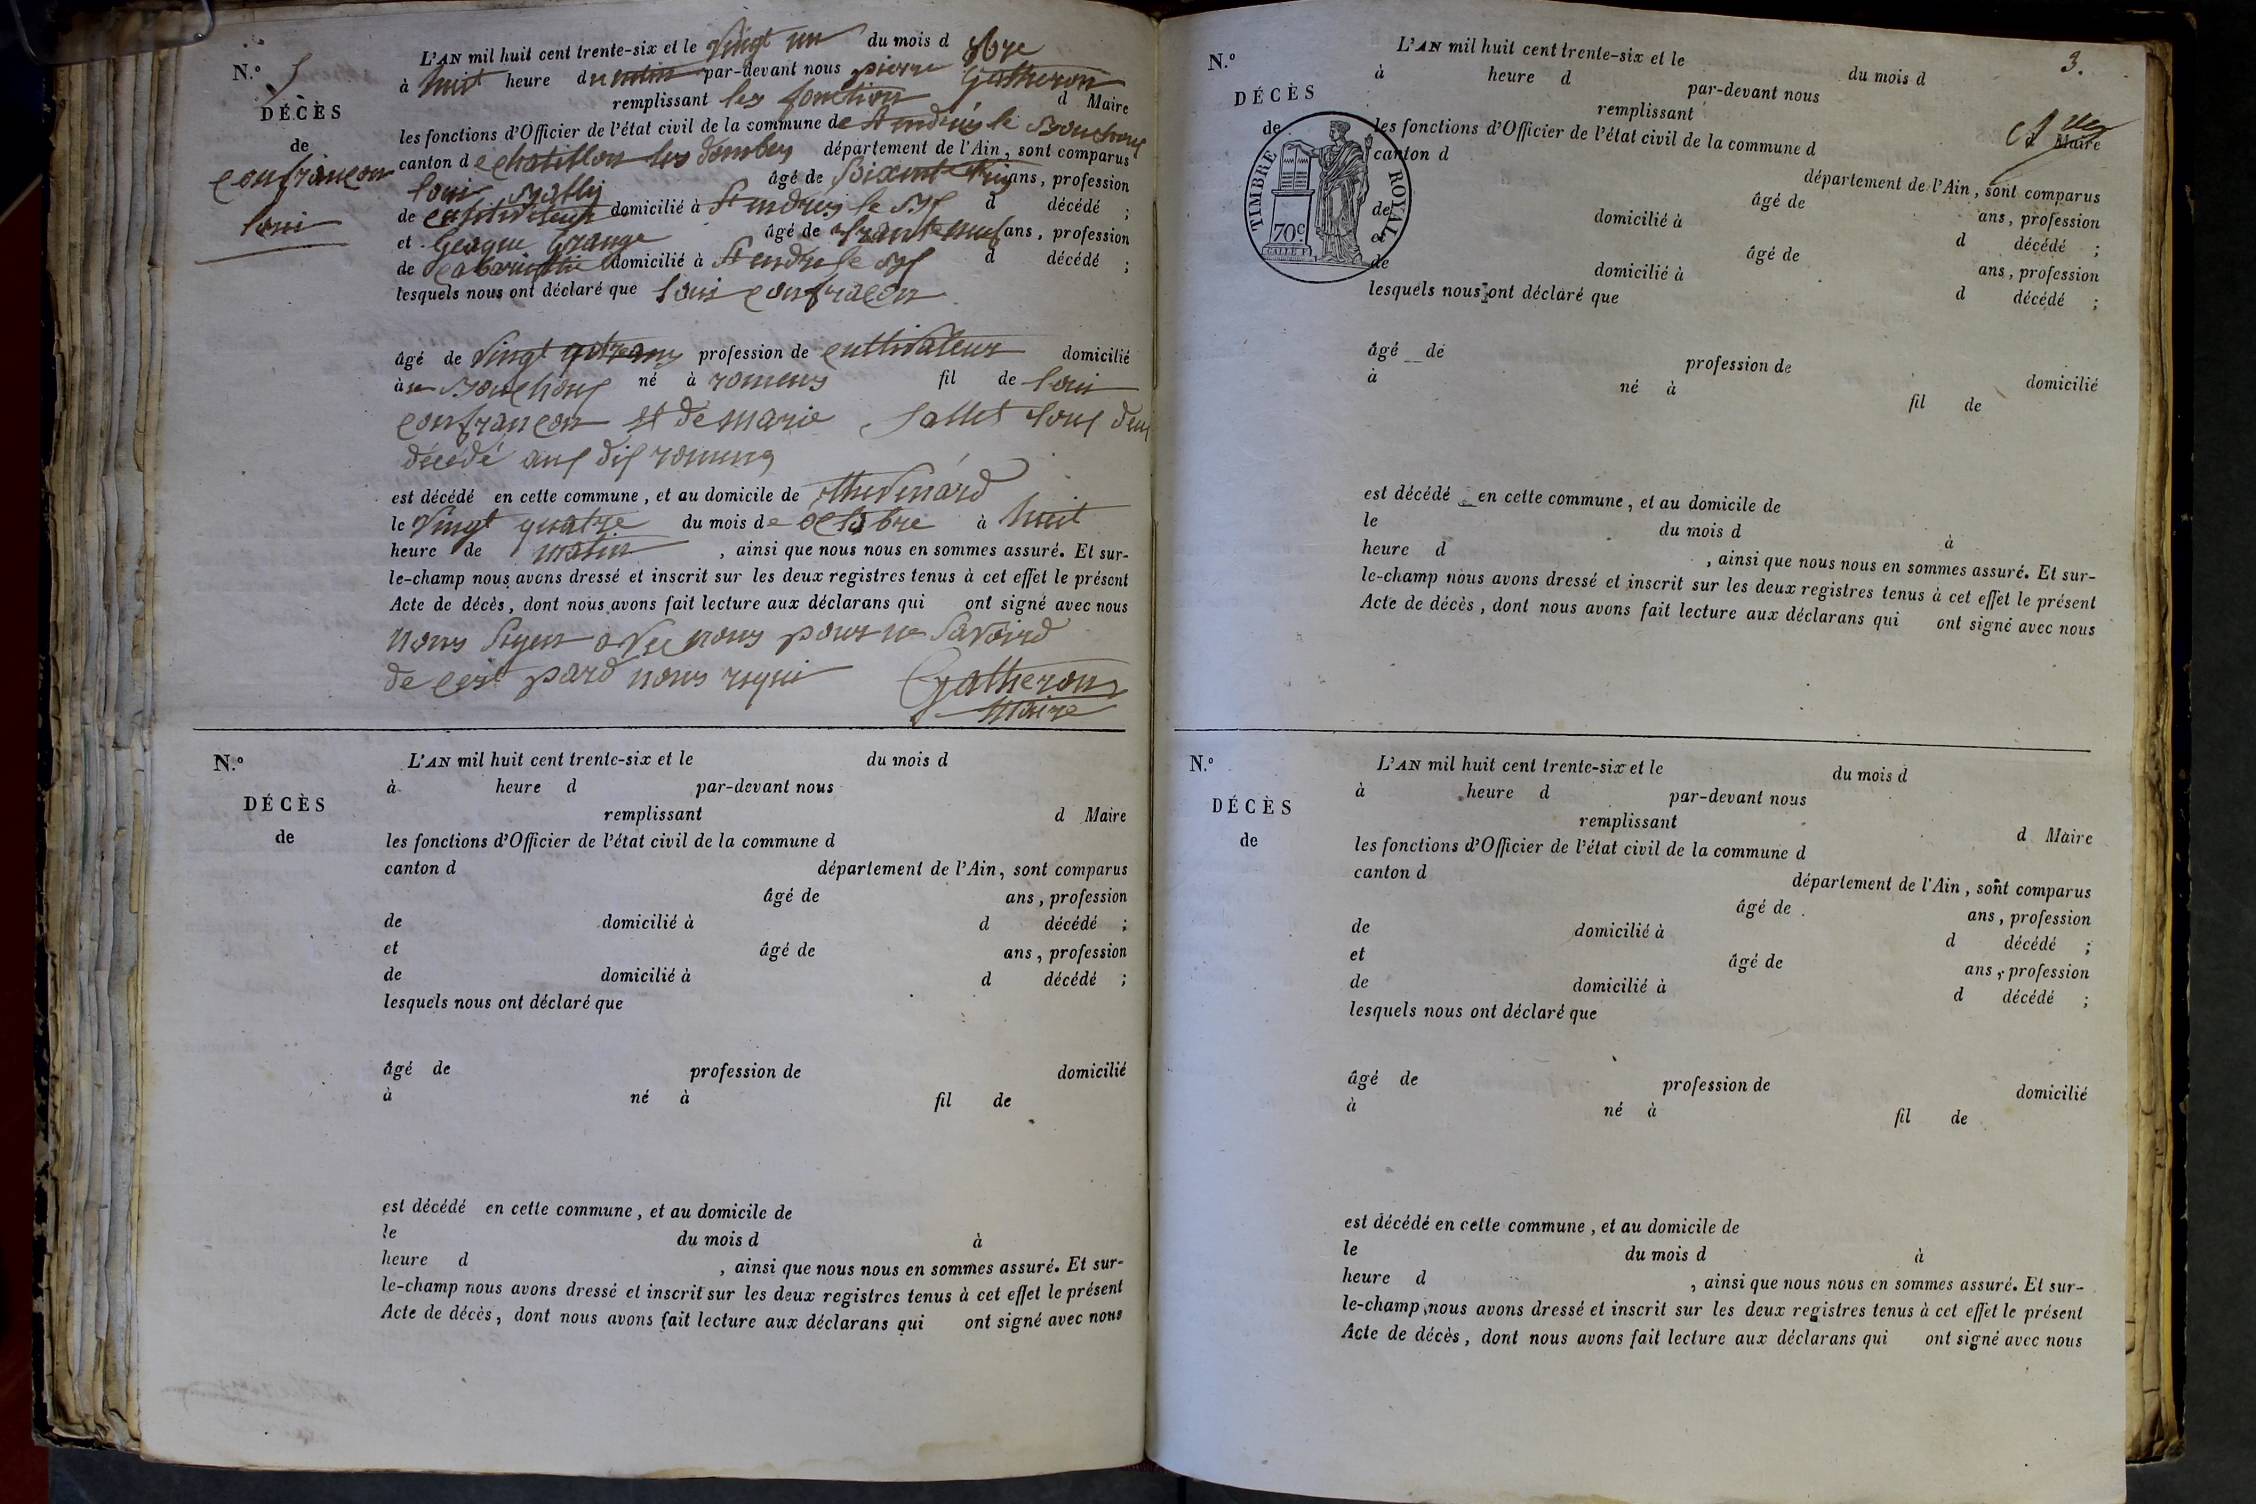 N.º 5
DÉCÈS
de
confrancon
loui
L'AN mil huit cent trente-six et le vingt un du mois d 8bre
à huit heure du matin par-devant nous pierre Gatheron
remplissant les fonction d Maire
les fonctions d'Officier de l'état civil de la commune de St andrés le Bouchoux
canton de chatillon les dombes département de l'Ain, sont comparus
loui âgé de ans, profession
de cultivateur domicilié à St andres le d décédé ;
et George Grange âgé de ans, profession
de cabaretie domicilié à St andre le d décédé ;
lesquels nous ont déclaré que loui confracon
âgé de vingt profession de cultivateur domicilié
à né à romens fil de loui
confrancon et de marie sallet tous deux
décédé romens
est décédé en cette commune, et au domicile de thevenard
le vingt quatre du mois de octobre à huit
heure de matin , ainsi que nous nous en sommes assuré. Et sur-
le-champ nous avons dressé et inscrit sur les deux registres tenus à cet effet le présent
Acte de décès, dont nous avons fait lecture aux déclarans qui ont signé avec nous
nous signer avec nous pour ne savoird
de cest pard nous requi Gatheron
Maire
N.º
DÉCÈS
de
L'AN mil huit cent trente-six et le du mois d
à heure d par-devant nous
remplissant d Maire
les fonctions d'Officier de l'état civil de la commune d
canton d département de l'Ain, sont comparus
âgé de ans, profession
de domicilié à d décédé ;
et âgé de ans, profession
de domicilié à d décédé ;
lesquels nous ont déclaré que
âgé de profession de domicilié
à né à fil de
est décédé en cette commune, et au domicile de
le du mois d à
heure d , ainsi que nous nous en sommes assuré. Et sur-
le-champ nous avons dressé et inscrit sur les deux registres tenus à cet effet le présent
Acte de décès, dont nous avons fait lecture aux déclarans qui ont signé avec nous
3.
N.º
DÉCÈS
de
TIMBRE ROYAL
70c
L'AN mil huit cent trente-six et le du mois d
à heure d par-devant nous
remplissant d Maire
les fonctions d'Officier de l'état civil de la commune d
canton d département de l'Ain, sont comparus
âgé de ans, profession
de domicilié à d décédé ;
et âgé de ans, profession
de domicilié à d décédé ;
lesquels nous ont déclaré que
âgé de profession de domicilié
à né à fil de
est décédé en cette commune, et au domicile de
le du mois d à
heure d , ainsi que nous nous en sommes assuré. Et sur-
le-champ nous avons dressé et inscrit sur les deux registres tenus à cet effet le présent
Acte de décès, dont nous avons fait lecture aux déclarans qui ont signé avec nous
N.º
DÉCÈS
de
L'AN mil huit cent trente-six et le du mois d
à heure d par-devant nous
remplissant d Maire
les fonctions d'Officier de l'état civil de la commune d
canton d département de l'Ain, sont comparus
âgé de ans, profession
de domicilié à d décédé ;
et âgé de ans, profession
de domicilié à d décédé ;
lesquels nous ont déclaré que
âgé de profession de domicilié
à né à fil de
est décédé en cette commune, et au domicile de
le du mois d à
heure d , ainsi que nous nous en sommes assuré. Et sur-
le-champ nous avons dressé et inscrit sur les deux registres tenus à cet effet le présent
Acte de décès, dont nous avons fait lecture aux déclarans qui ont signé avec nous